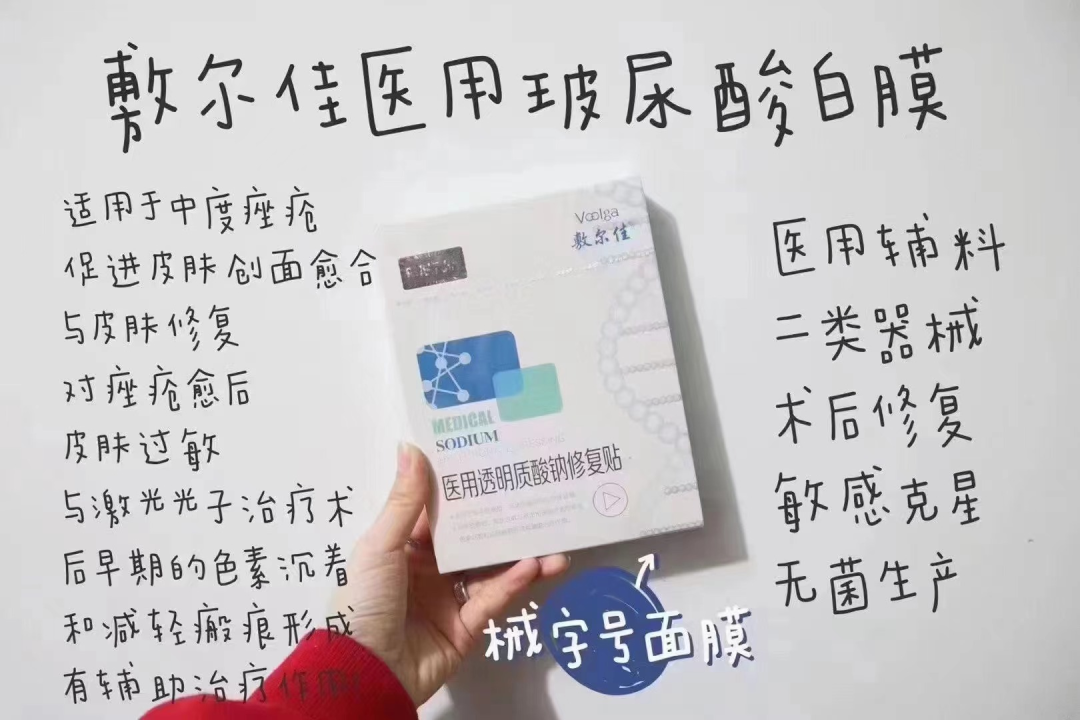 敷尔佳医用玻尿酸白膜
适用于中度痤疮
促进皮肤创面愈合
与皮肤修复
对痤疮愈后
皮肤过敏
与激光光子治疗术
后早期的色素沉着
和减轻瘢痕形成
有辅助治疗作用
Voolga
敷尔佳
MEDICAL
SODIUM
医用透明质酸钠修复贴
医用辅料
二类器械
术后修复
敏感克星
无菌生产
械字号面膜